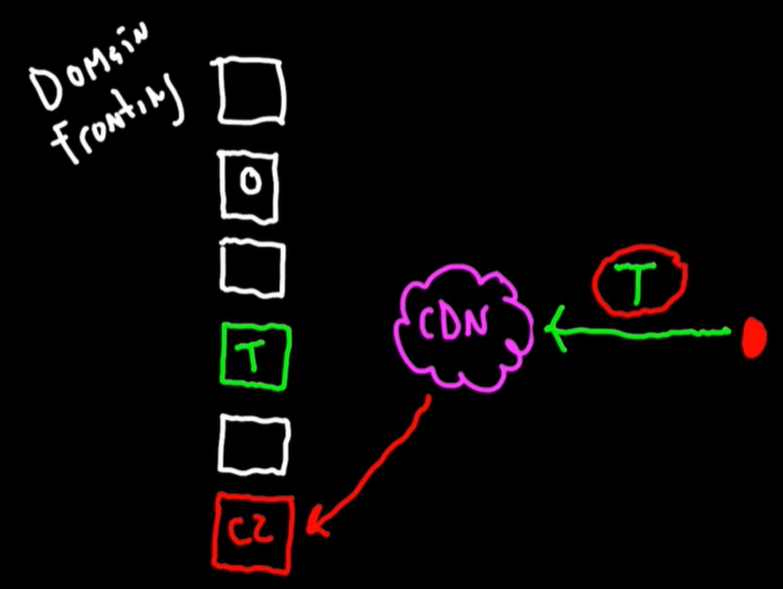 Domain
Fronting
O
T
CDN
T
C2